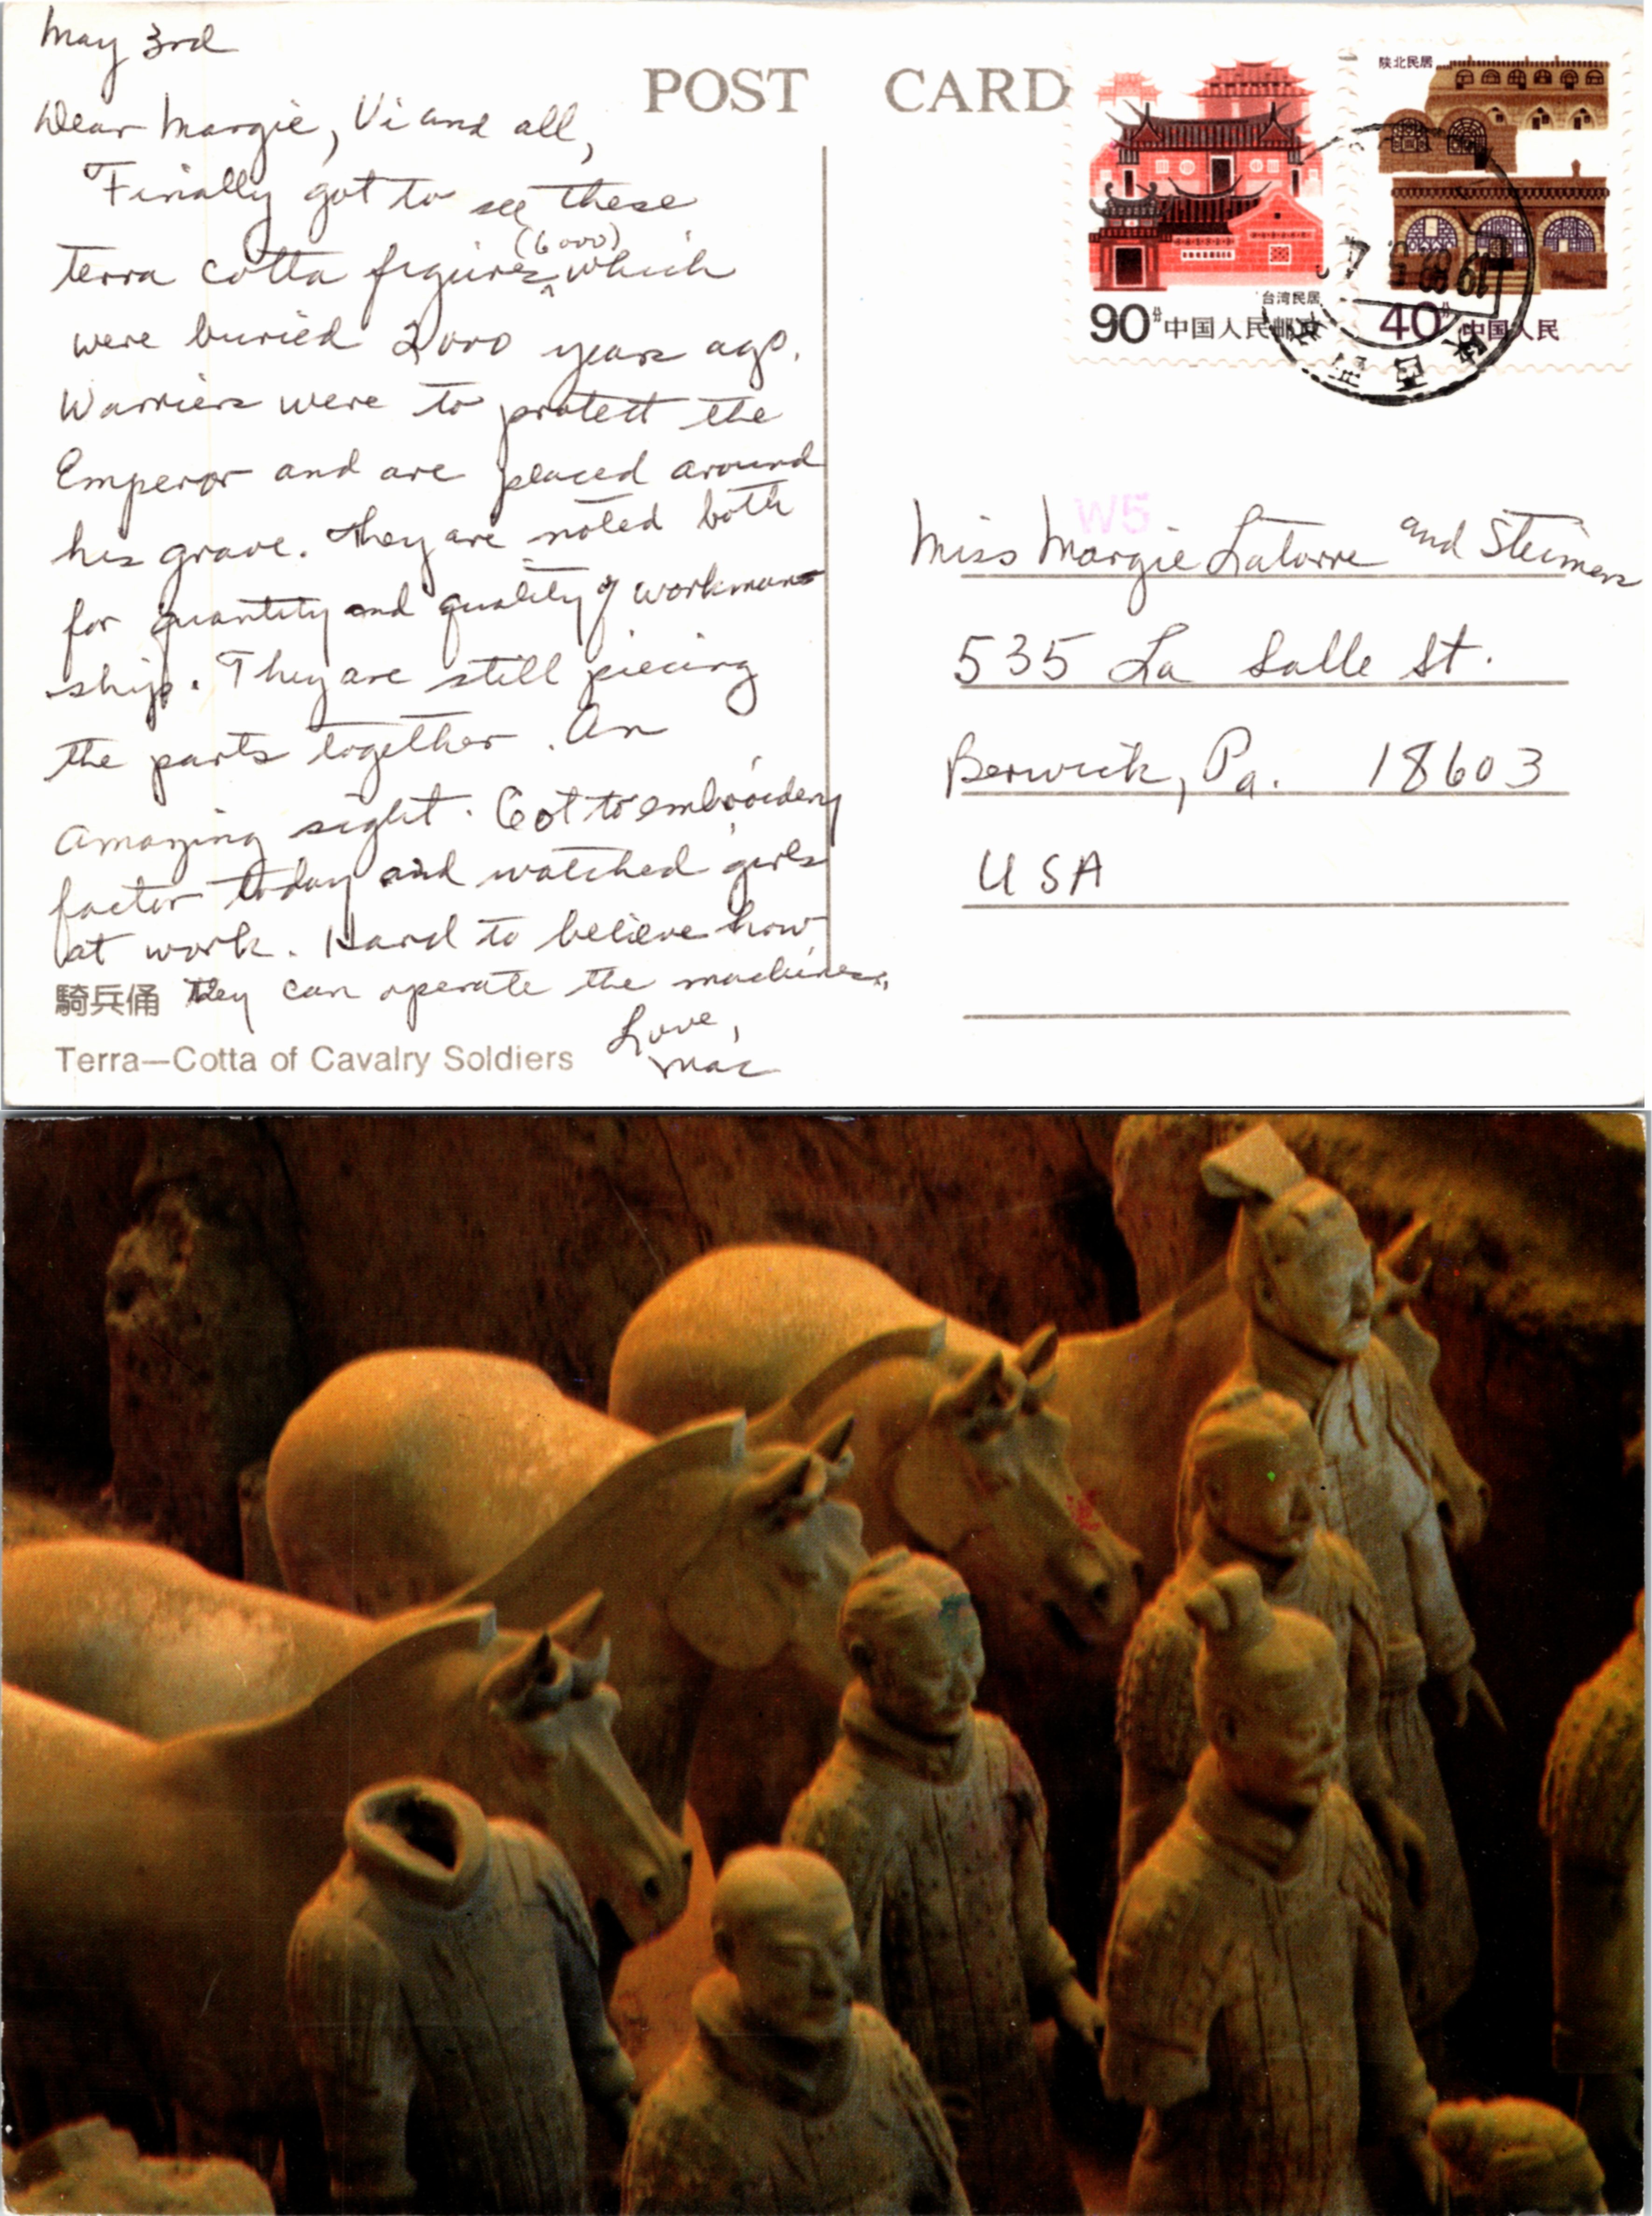 May 3rd
Dear Margie, Vi and all,
Finally got to see these
terra cotta figures (6000) which
were buried 2000 years ago.
Warriers were to protect the
Emperor and are placed around
his grave. They are noted both
for quantity and quality of workman-
ship. They are still piecing
the parts together. An
amazing sight. Got to embroidery
factor today and watched girls
at work. Hard to believe how
they can operate the machines.
Love,
Mac
騎兵俑
Terra—Cotta of Cavalry Soldiers
POST CARD
台湾民居
90分 中国人民邮政
陕北民居
40分 中国人民
W5
Miss Margie Latorre and Steimers
535 La Salle St.
Berwick, Pa. 18603
USA